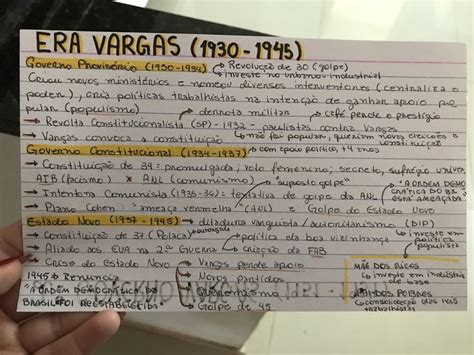 ERA VARGAS (1930-1945)
Governo Provisório (1930-1934) → Revolução de 30 (golpe)
→ investe no urbano-industrial
Criou novos ministérios e nomeou diversos interventores (centraliza o
poder), cria políticas trabalhistas na intenção de ganhar apoio po-
pular (populismo) → derrota militar → café perde o prestígio
→ Revolta Constitucionalista (SP) - 1932 - paulistas contra Vargas
→ Vargas convoca a constituição → não foi popular, queriam novas eleições e constituição
Governo Constitucional (1934-1937) → com apoio político, +4 anos
→ Constituição de 34: promulgada; voto feminino; secreto, sufrágio univer.
AIB (facismo) x ANL (comunismo) → "suposto golpe" → "A ORDEM DEMO
CRÁTICA DO BR
ESTÁ AMEAÇADA
→ Intentona Comunista (1935-36): tentativa de golpe da ANL
→ Plano Cohen: "ameaça vermelha" (ANL) e Golpe do Estado Novo
Estado Novo (1937-1945) → ditadura varguista/autoritarismo (DIP)
→ Constituição de 37 (Polaca) → política da boa vizinhança
→ investe em política populista
→ Aliado aos EUA na 2ª Guerra → criação da FAB
→ Crise do Estado Novo → Vargas perde apoio
1945 → Renúncia → Novos partidos
"A ORDEM DEMOCRÁTICA DO → Queremismo
BRASIL FOI REESTABELECIDA" → Golpe de 45
MÃE DOS RICOS
→ investe em indústria
de base
PAI DOS POBRES
→ consolidação das leis
trabalhistas